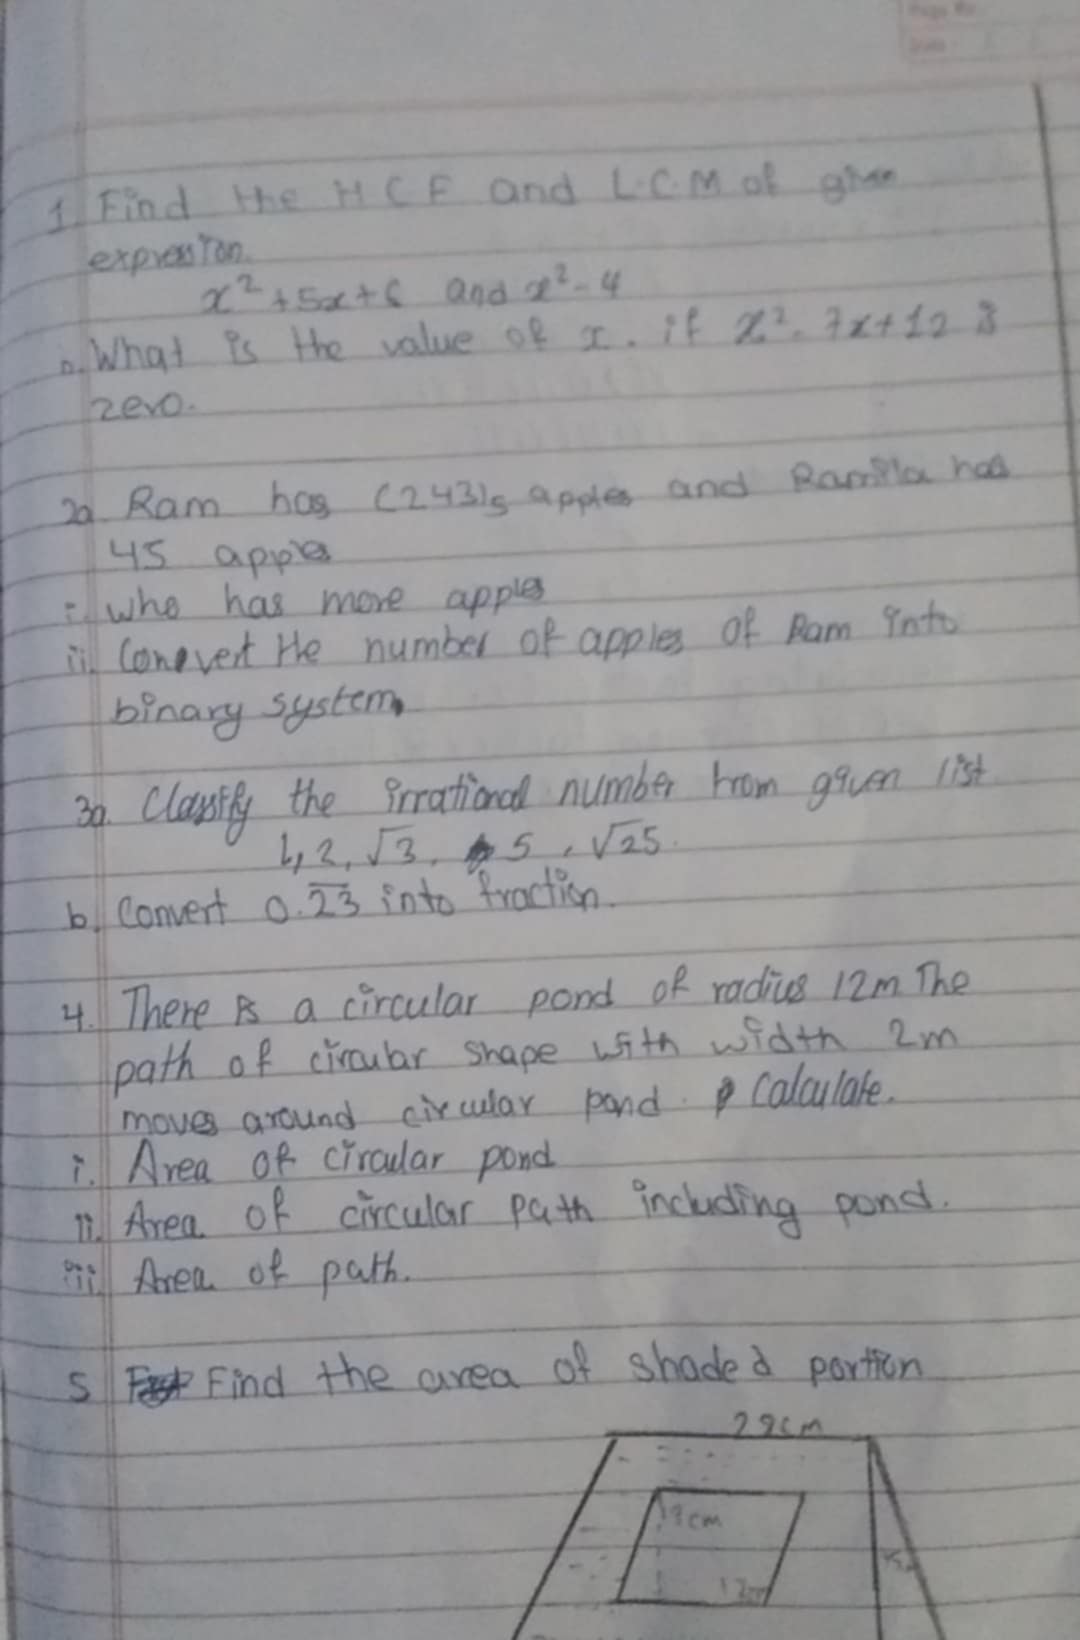 1. Find the HCF and L.C.M of given
expression.
x² + 5x + 6 and x² - 4
b. What is the value of x. if x² - 7x + 12 is
zero.
2a Ram has (243)₅ apples and Ramila has
45 apples
i. who has more apples
ii. Conevert the number of apples of Ram into
binary system.
3a. Classify the irrational number from given list
1, 2, √3, 5, √25.
b. Convert 0.2̅3̅ into fraction.
4. There is a circular pond of radius 12m The
path of circular shape with width 2m
moves around circular pond. Calculate.
i. Area of circular pond
ii. Area of circular path including pond.
iii Area of path.
5 Find the area of shaded portion
cm
cm